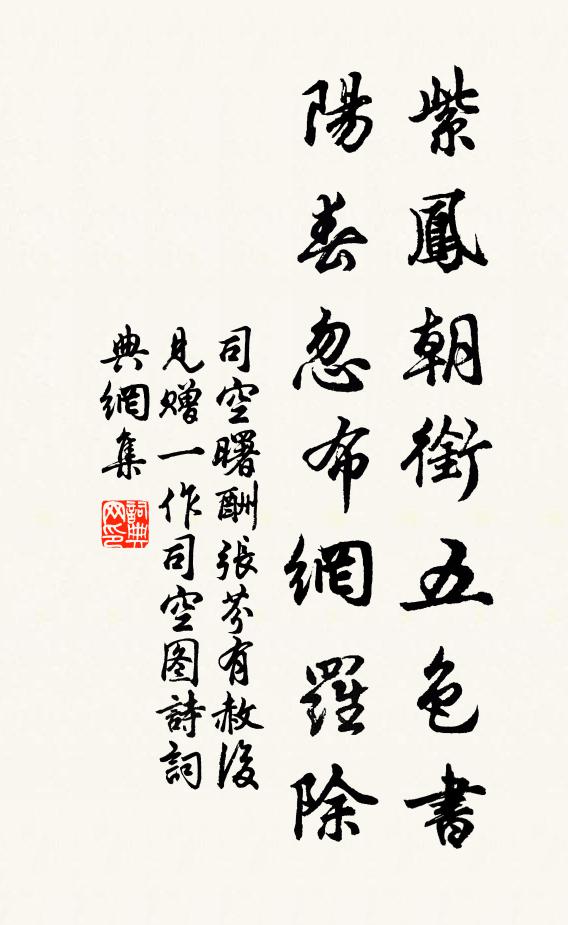 紫鳳朝銜五色書
陽春忽布網羅除
司空曙酬張芬有赦後
見贈一作司空图詩詞
典網集
詞典网印